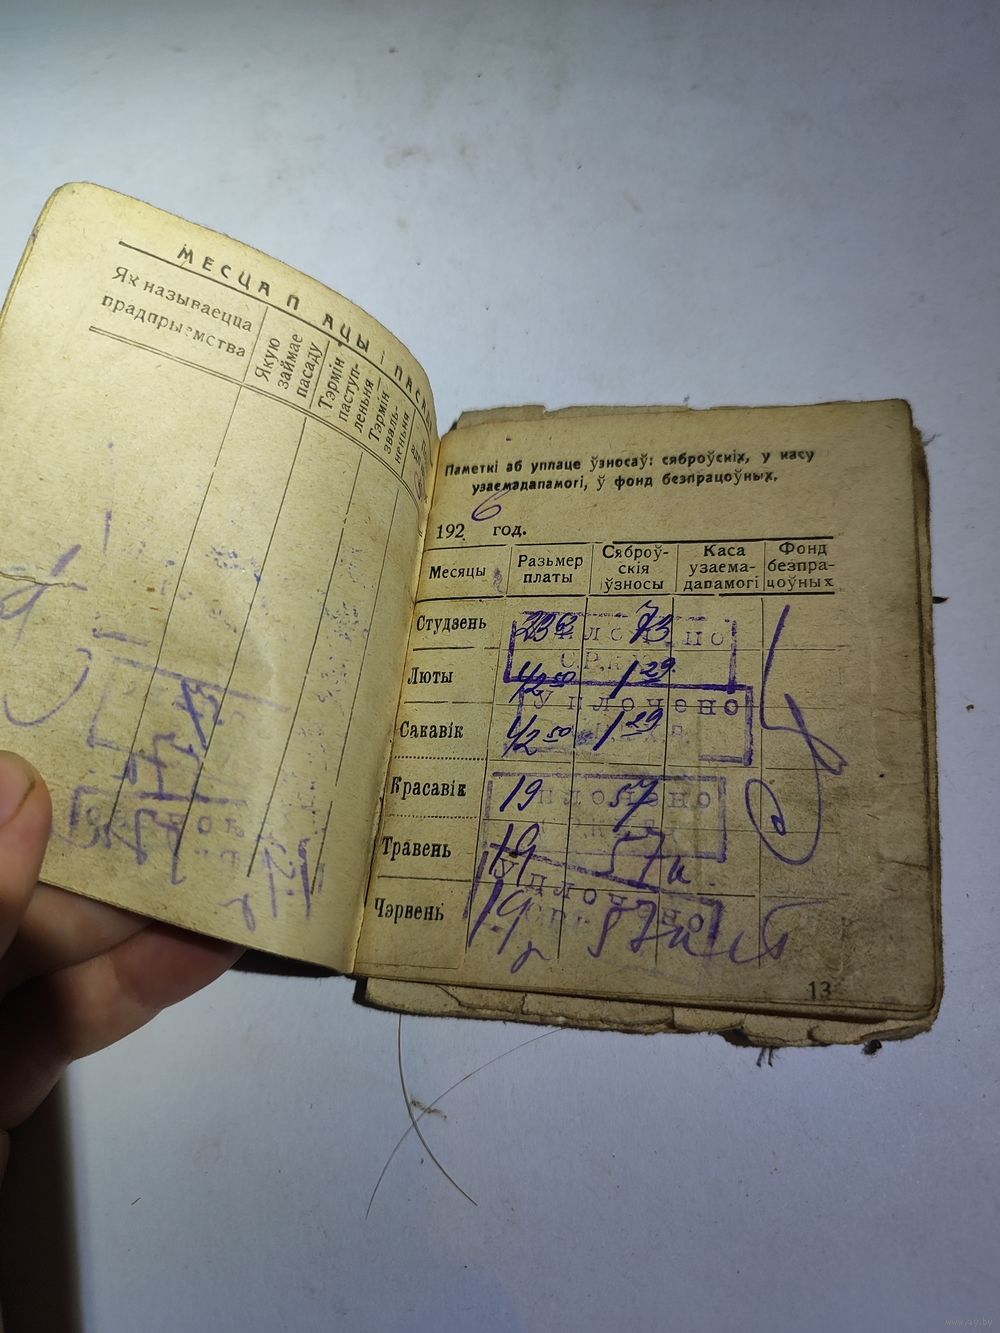 МЕСЦА П АЦЫ і ПАСА
Як называецца
прадпрыемства
Якую
займае
пасаду
Тэрмін
паступ-
леньня
Тэрмін
зваль-
неньня
Паметкі аб уплаце ўзносаў: сяброўскіх, у касу
узаемадапамогі, ў фонд безпрацоўных.
1926 год.
Месяцы
Разьмер
платы
Сяброў-
скія
ўзносы
Каса
узаема-
дапамогі
Фонд
безпра-
цоўных
Студзень 73
Люты 42 50 1 29
Сакавік 42 50 1 29
Уплочено
Красавік 19 57
Травень 19 57 к
Уплочено
Чэрвень 19 57 к
13
www.ay.by